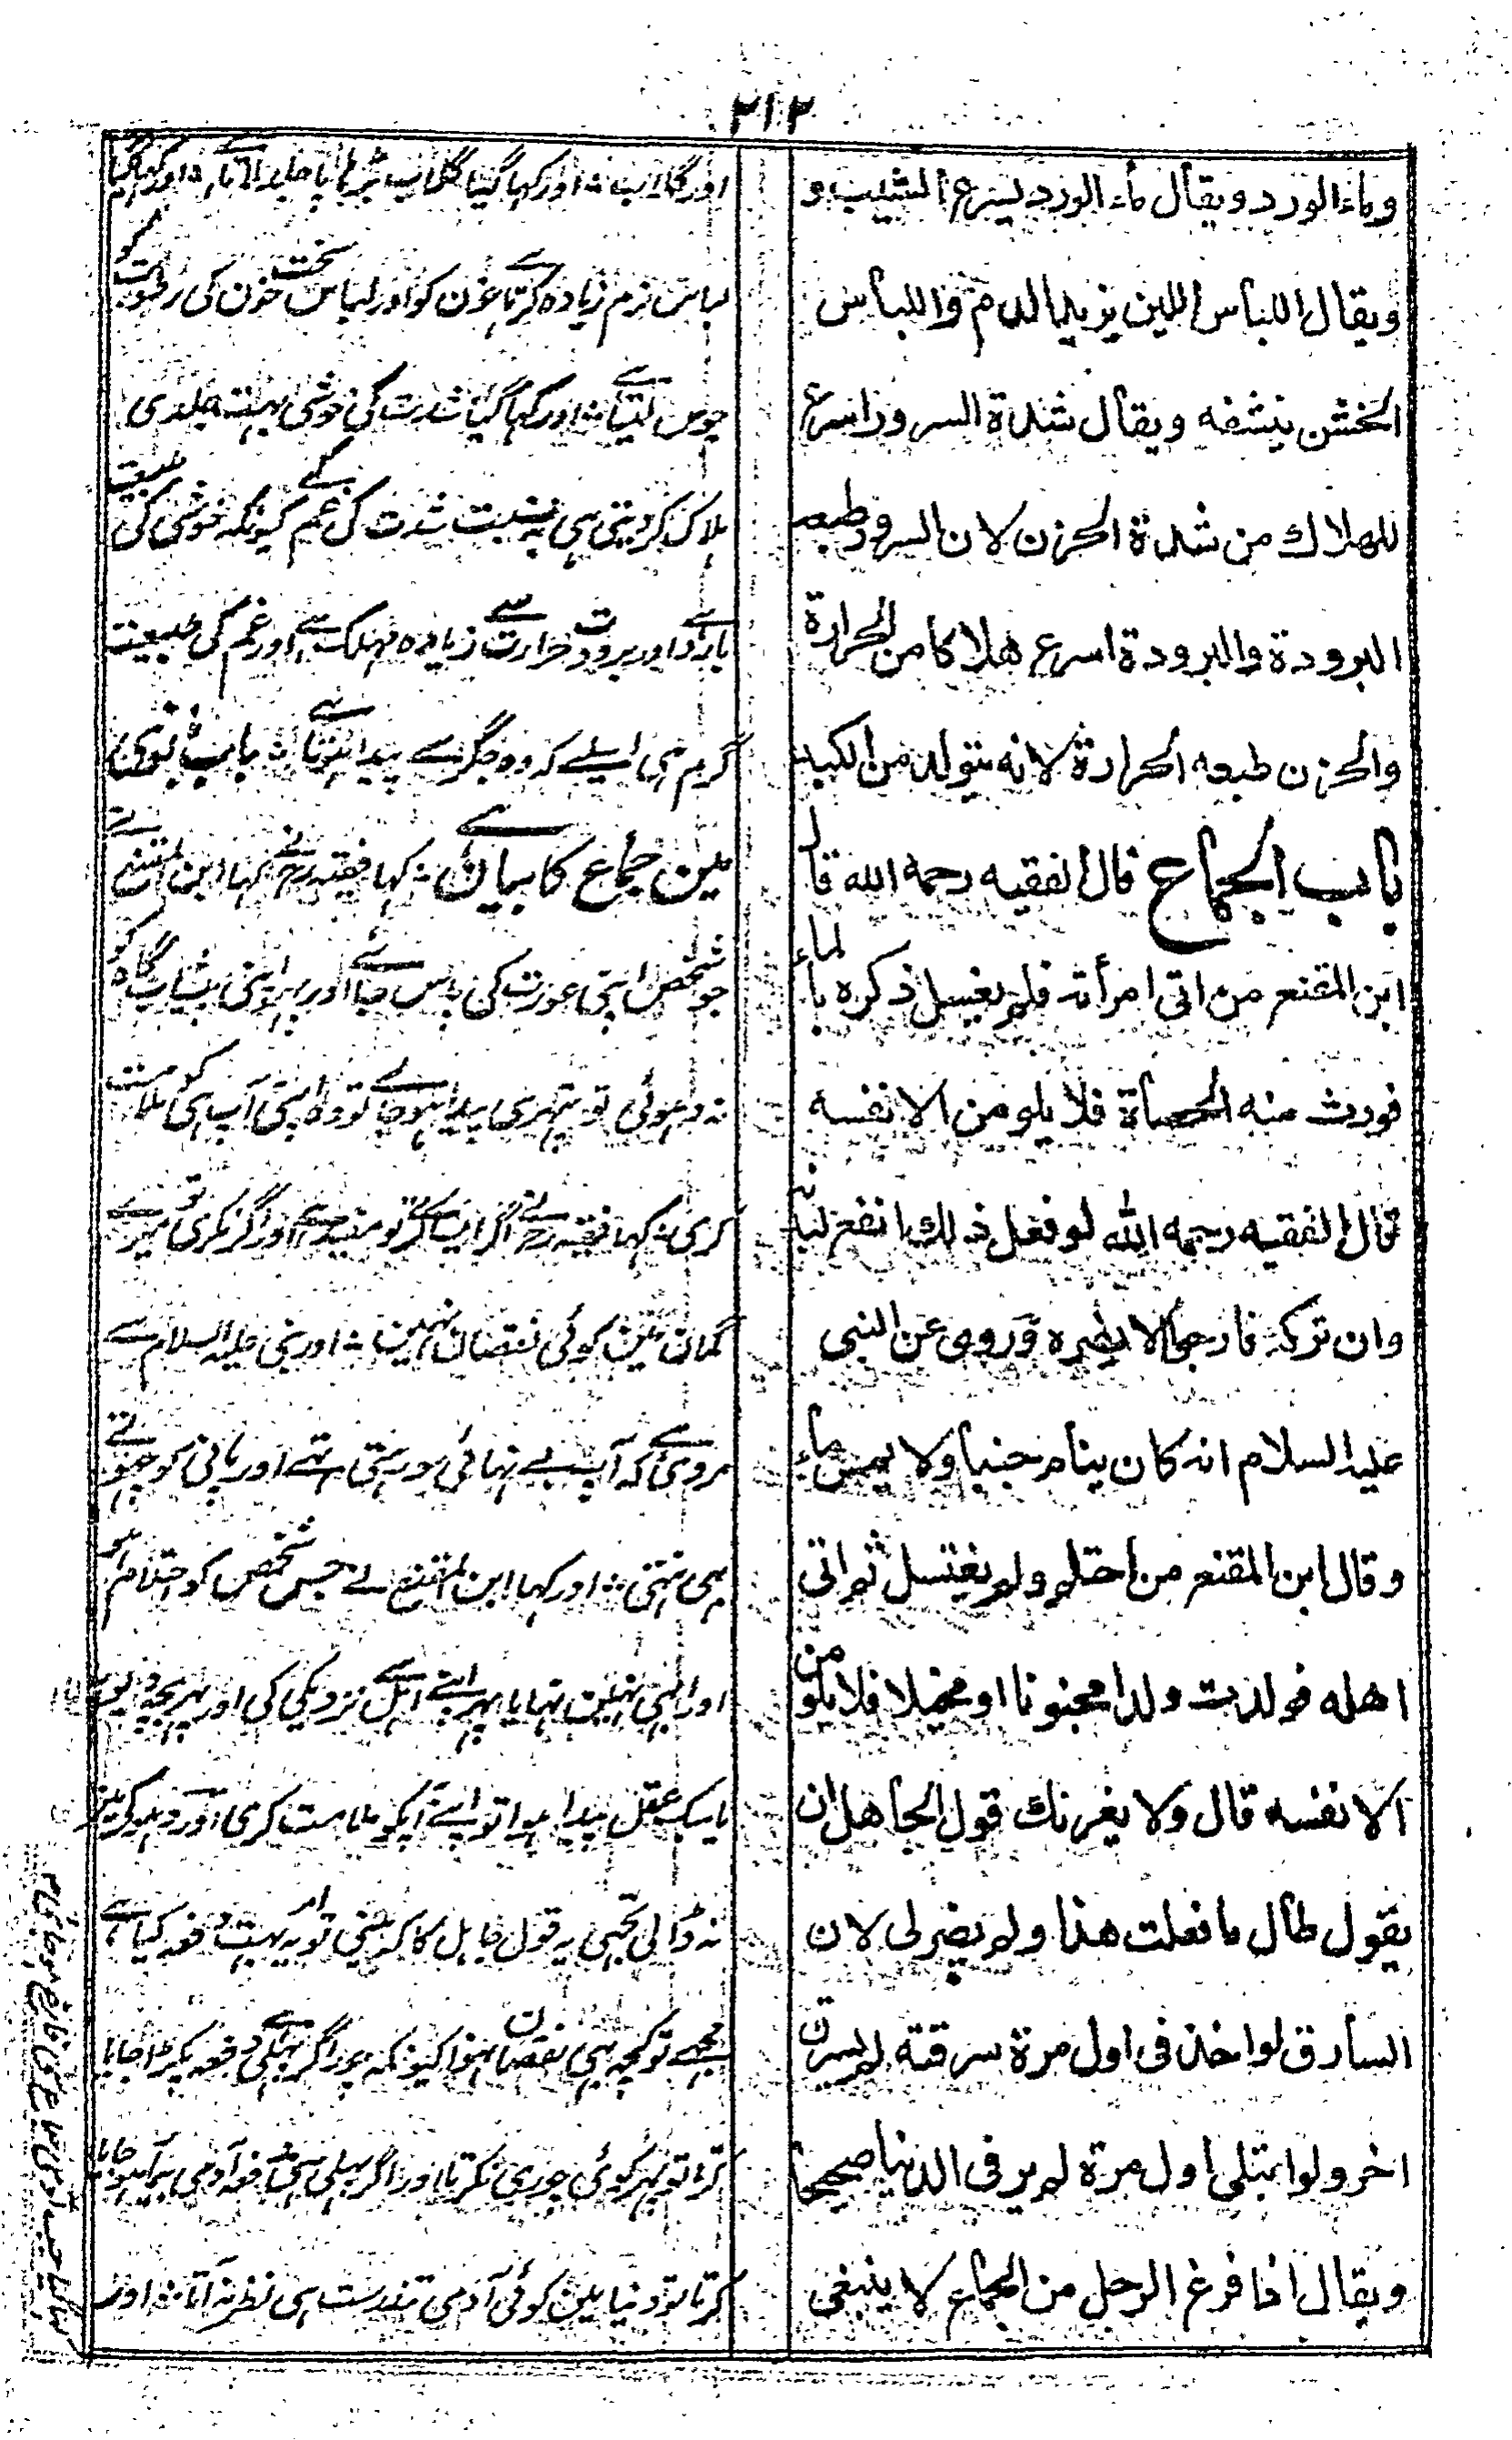 ٢١٢
وماء الورد ويقال ماء الورد يسرع الشيب و
ويقال اللباس اللين يزيد الدم واللباس
الخشن ينشفه ويقال شدة السرور اسرع
للهلاك من شدة الحزن لان السرور طبعه
البرودة والبرودة اسرع هلاكا من الحرارة
والحزن طبعه الحرارة لانه يتولد من الكبد
باب الجماع قال الفقيه رحمه الله قال
ابن المقنع من اتى امرأته فلم يغسل ذكره بالماء
فورث منه الحصاة فلا يلومن الا نفسه
قال الفقيه رحمه الله لو فعل ذلك انفع لبدنه
وان تركه فارجو لا يضره وروى عن النبى
عليه السلام انه كان ينام جنبا ولا يمس ماء
وقال ابن المقنع من احتلم ولم يغتسل ثم اتى
اهله فولدت ولدا مجنونا او مخبلا فلا يلومن
الا نفسه قال ولا يغرنك قول الجاهل ان
يقول طال ما فعلت هذا ولم يضر لى لان
السارق لو اخذ فى اول مرة سرقته لم يسرق
اخر ولو ابتلى اول مرة لم ير فى الدنيا صحيحا
ويقال اذا فرغ الرجل من الجماع لا ينبغى
اور گلاب ؞ اور کہا گیا گلاب بڑہاپا جلد لاتا ہے اور کہا گیا
لباس نرم زیادہ کرتا ہے خون کو اور لباس سخت خون کی رطوبت کو
چوس لیتا ہے ؞ اور کہا گیا شدت کی خوشی بہت جلدی
ہلاک کر دیتی ہی بہ نسبت شدت کی غم کے کیونکہ خوشی کی طبیعت
بارد ہے اور برودت حرارت سے زیادہ مہلک ہے اور غم کی طبیعت
گرم ہی اسلیے کہ وہ جگر سے پیدا ہوتا ہے ؞ باب نوی
مین جماع کا بیان ہے ؞ کہا فقیہ رح نے کہا ابن المقنع نے
جو شخص اپنی عورت کی پاس جائے اور پہر اپنی پیشاب گاہ کو
نہ دہوئی تو پتہری پیدا ہو جائے تو وہ اپنی آپ ہی کو ملامت
کری ؞ کہا فقیہ رح نے اگر ایسا کرے تو مفید ہے اور اگر نکری تو میرے
گمان مین کوئی نقصان نہین ؞ اور نبی علیہ السلام سے
مروی ہے کہ آپ بے نہائی سو رہتی تہے اور پانی کو چہوتے
ہی نتہی ؞ اور کہا ابن المقنع نے جس شخص کو احتلام ہو
اور نہین نہایا پہر اپنے اہل سے نزدیکی کی اور پہر بچہ دیوانہ
یا سبک عقل پیدا ہوا تو اپنے آپکو ملامت کری اور دہوکہ مین
نہ ڈالی تجہی یہ قول جاہل کا کہ مینی تو یہ امر بہت دفعہ کیا ہے
مجہے تو کچہ بہی نقصان نہوا کیونکہ چور اگر پہلے ہی دفعہ پکڑا جایا
کرتا تو پہر کوئی چوری نکرتا اور اگر پہلی ہی دفعہ آدمی مبتلا ہو جایا
کرتا تو دنیا مین کوئی آدمی تندرست ہی نظر نہ آتا ؞ اور